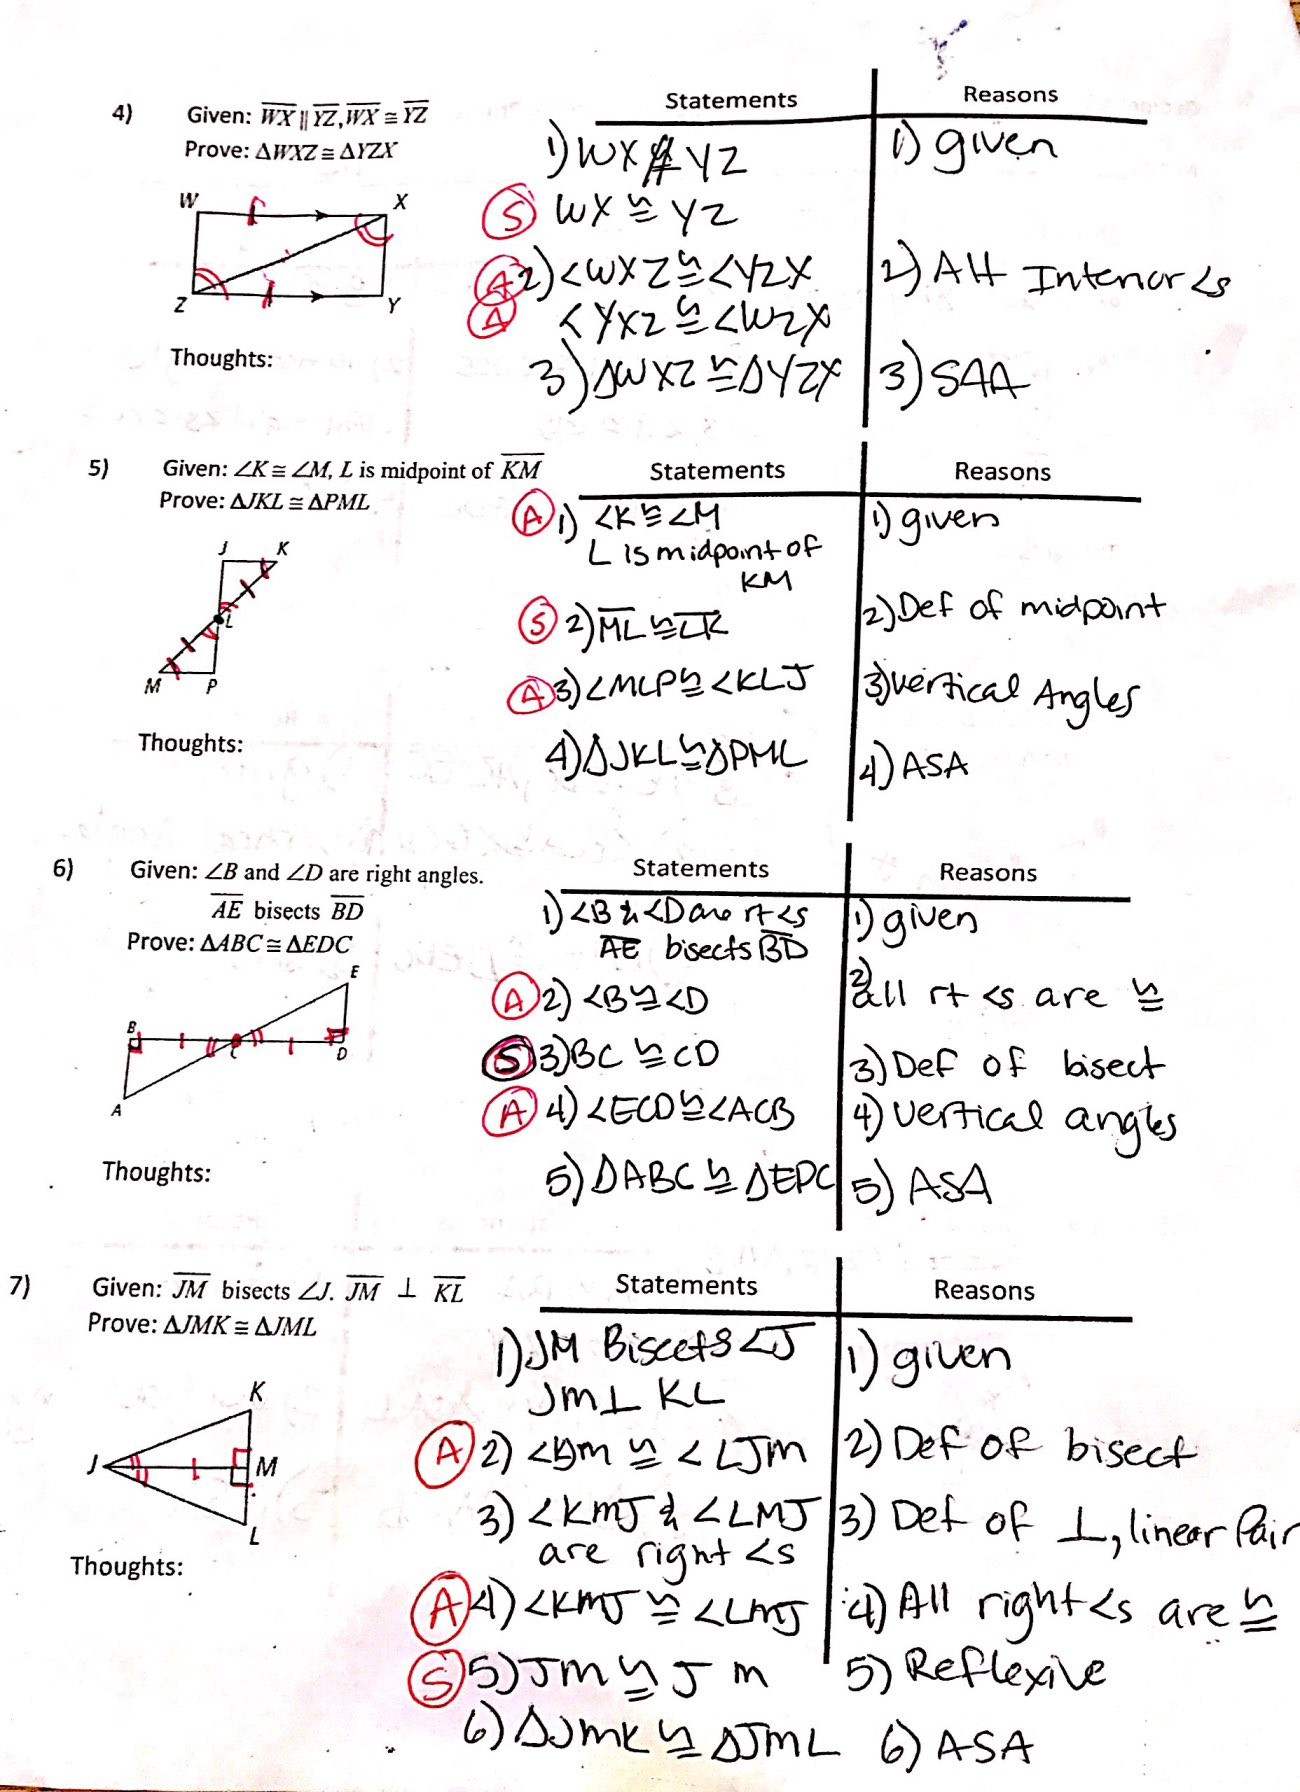 4) Given: WX ∥ YZ, WX ≅ YZ
Prove: ΔWXZ ≅ ΔYZX
W X
Z Y
Thoughts:
Statements Reasons
1) WX ∦ YZ 1) given
S WX ≅ YZ
A 2) <WXZ ≅ <YZX 2) Alt Interior <s
A <YXZ ≅ <WZX
3) ΔWXZ ≅ ΔYZX 3) SAA
5) Given: ∠K ≅ ∠M, L is midpoint of KM
Prove: ΔJKL ≅ ΔPML
J K
L
M P
Thoughts:
Statements Reasons
A 1) <K ≅ <M 1) given
L is midpoint of
KM
S 2) ML ≅ LK 2) Def of midpoint
A 3) <MLP ≅ <KLJ 3) Vertical Angles
4) ΔJKL ≅ ΔPML 4) ASA
6) Given: ∠B and ∠D are right angles.
AE bisects BD
Prove: ΔABC ≅ ΔEDC
E
B C D
A
Thoughts:
Statements Reasons
1) <B & <D are rt <s 1) given
AE bisects BD
A 2) <B ≅ <D 2) all rt <s are ≅
S 3) BC ≅ CD 3) Def of bisect
A 4) <ECD ≅ <ACB 4) Vertical angles
5) ΔABC ≅ ΔEDC 5) ASA
7) Given: JM bisects ∠J. JM ⊥ KL
Prove: ΔJMK ≅ ΔJML
K
J M
L
Thoughts:
Statements Reasons
1) JM Biscets <J 1) given
JM ⊥ KL
A 2) ≅ <LJM 2) Def of bisect
3) <KMJ & <LMJ 3) Def of ⊥, linear Pair
are right <s
A 4) <KMJ ≅ <LMJ 4) All right <s are ≅
S 5) JM ≅ JM 5) Reflexive
6) ΔJMK ≅ ΔJML 6) ASA